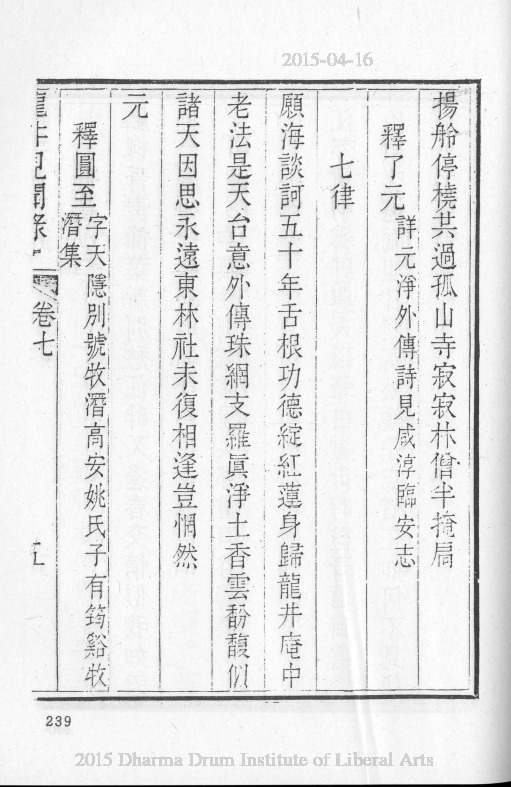 2015-04-16
揚舲停橈共過孤山寺寂寂林僧半掩扃
釋了元詳元淨外傳詩見咸淳臨安志
七律
願海談訶五十年舌根功德綻紅蓮身歸龍井庵中
老法是天台意外傳珠網支羅眞淨土香雲馚馥似
諸天因思永遠東林社未復相逢豈惘然
元
釋圓至字天隱別號牧潛高安姚氏子有筠谿牧潛集
龍井見聞錄 卷七 五
239
2015 Dharma Drum Institute of Liberal Arts